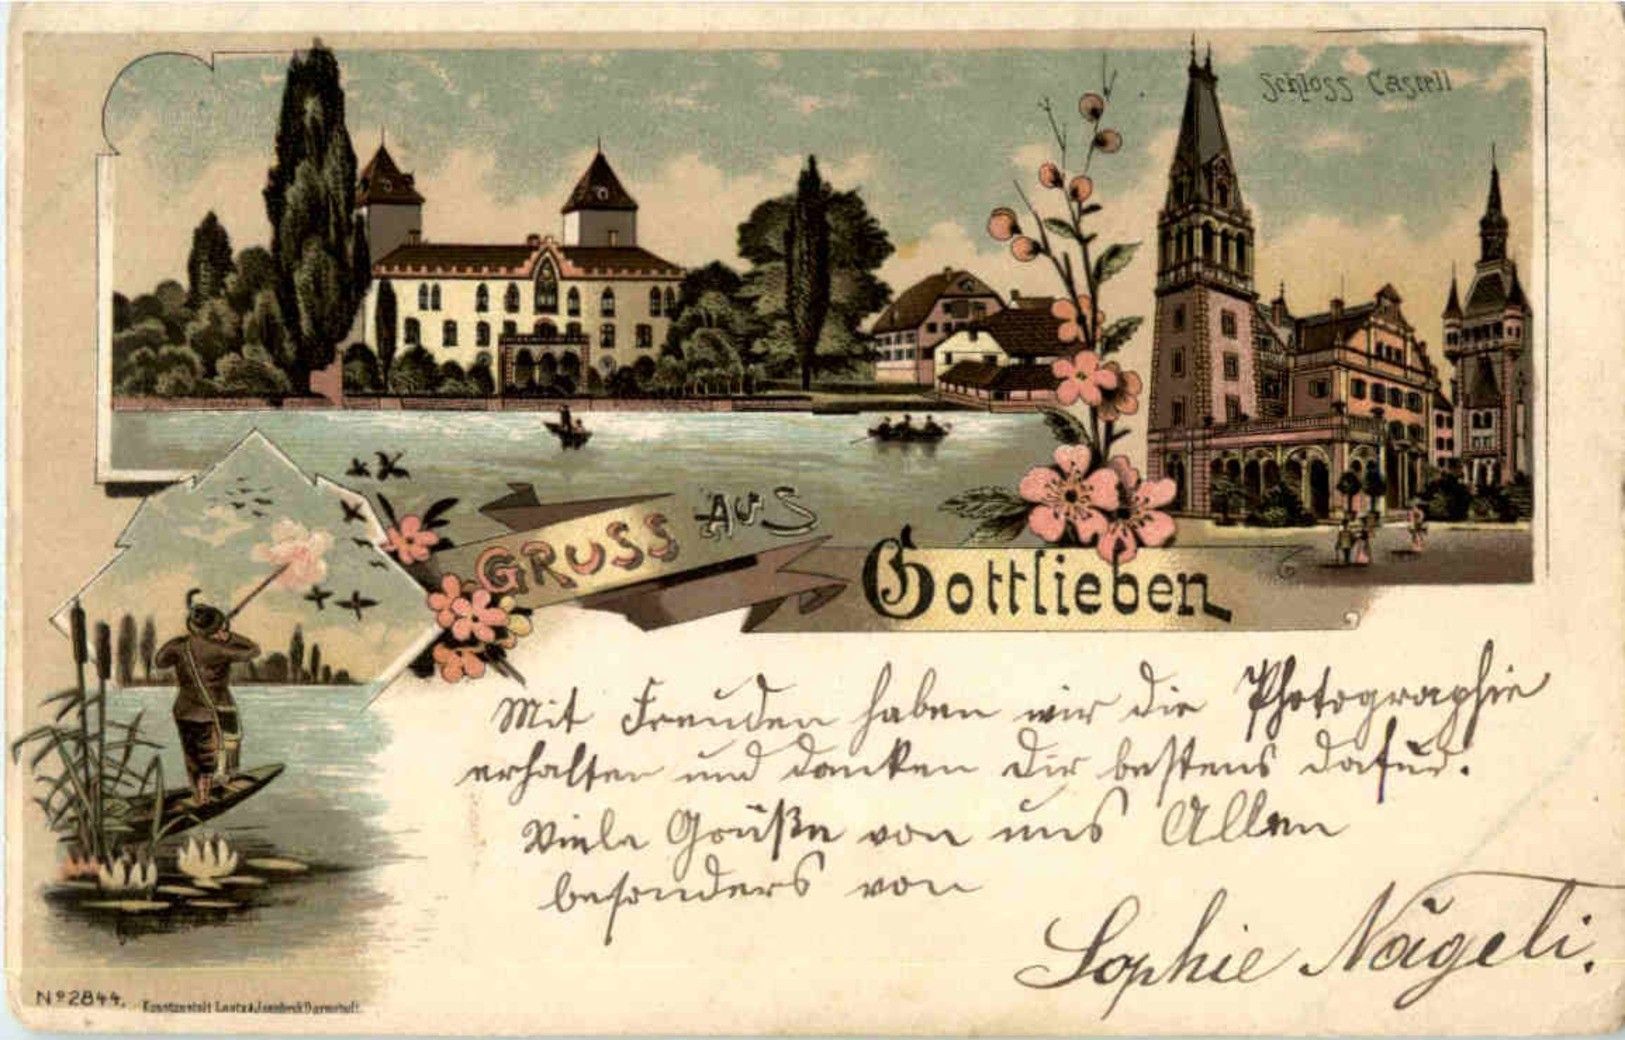 Schloss Castell
GRUSS AUS
Gottlieben
Mit Freuden haben wir die Photographie
erhalten und danken Dir bestens dafür.
Viele Grüße von uns Allen
besonders von
Sophie Nägeli.
Nº 2844. Kunstanstalt Lautz & Isenbeck Darmstadt.